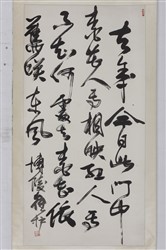 去年今日此門中
桃花人面相映紅人面
不知何處去桃花依
舊笑春風 博陵